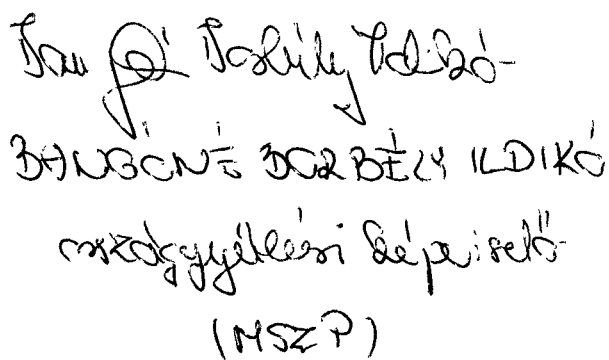 Bangóné Borbély Ildikó
BANGÓNÉ BORBÉLY ILDIKÓ
országgyűlési képviselő
(MSZP)